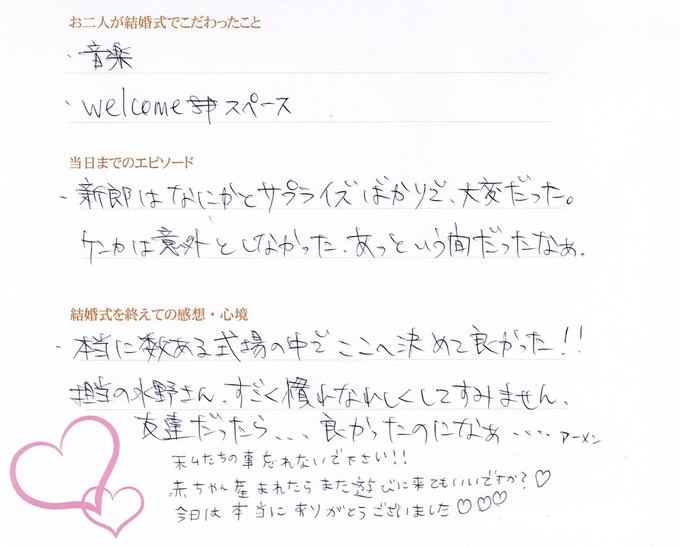 お二人が結婚式でこだわったこと
・音楽
・welcome スペース
当日までのエピソード
・新郎はなにかとサプライズばかりで、大変だった。
ケンカは意外としなかった、あっという間だったなぁ。
結婚式を終えての感想・心境
・本当に数ある式場の中でここへ決めて良かった!!
担当の水野さん、すごく慣れなれしくしてすみません、
友達だったら、、、良かったのになぁ.... アーメン
私たちの事忘れないで下さい!!
赤ちゃん産まれたらまた遊びに来てもいいですか?♡
今日は本当にありがとうございました♡♡♡